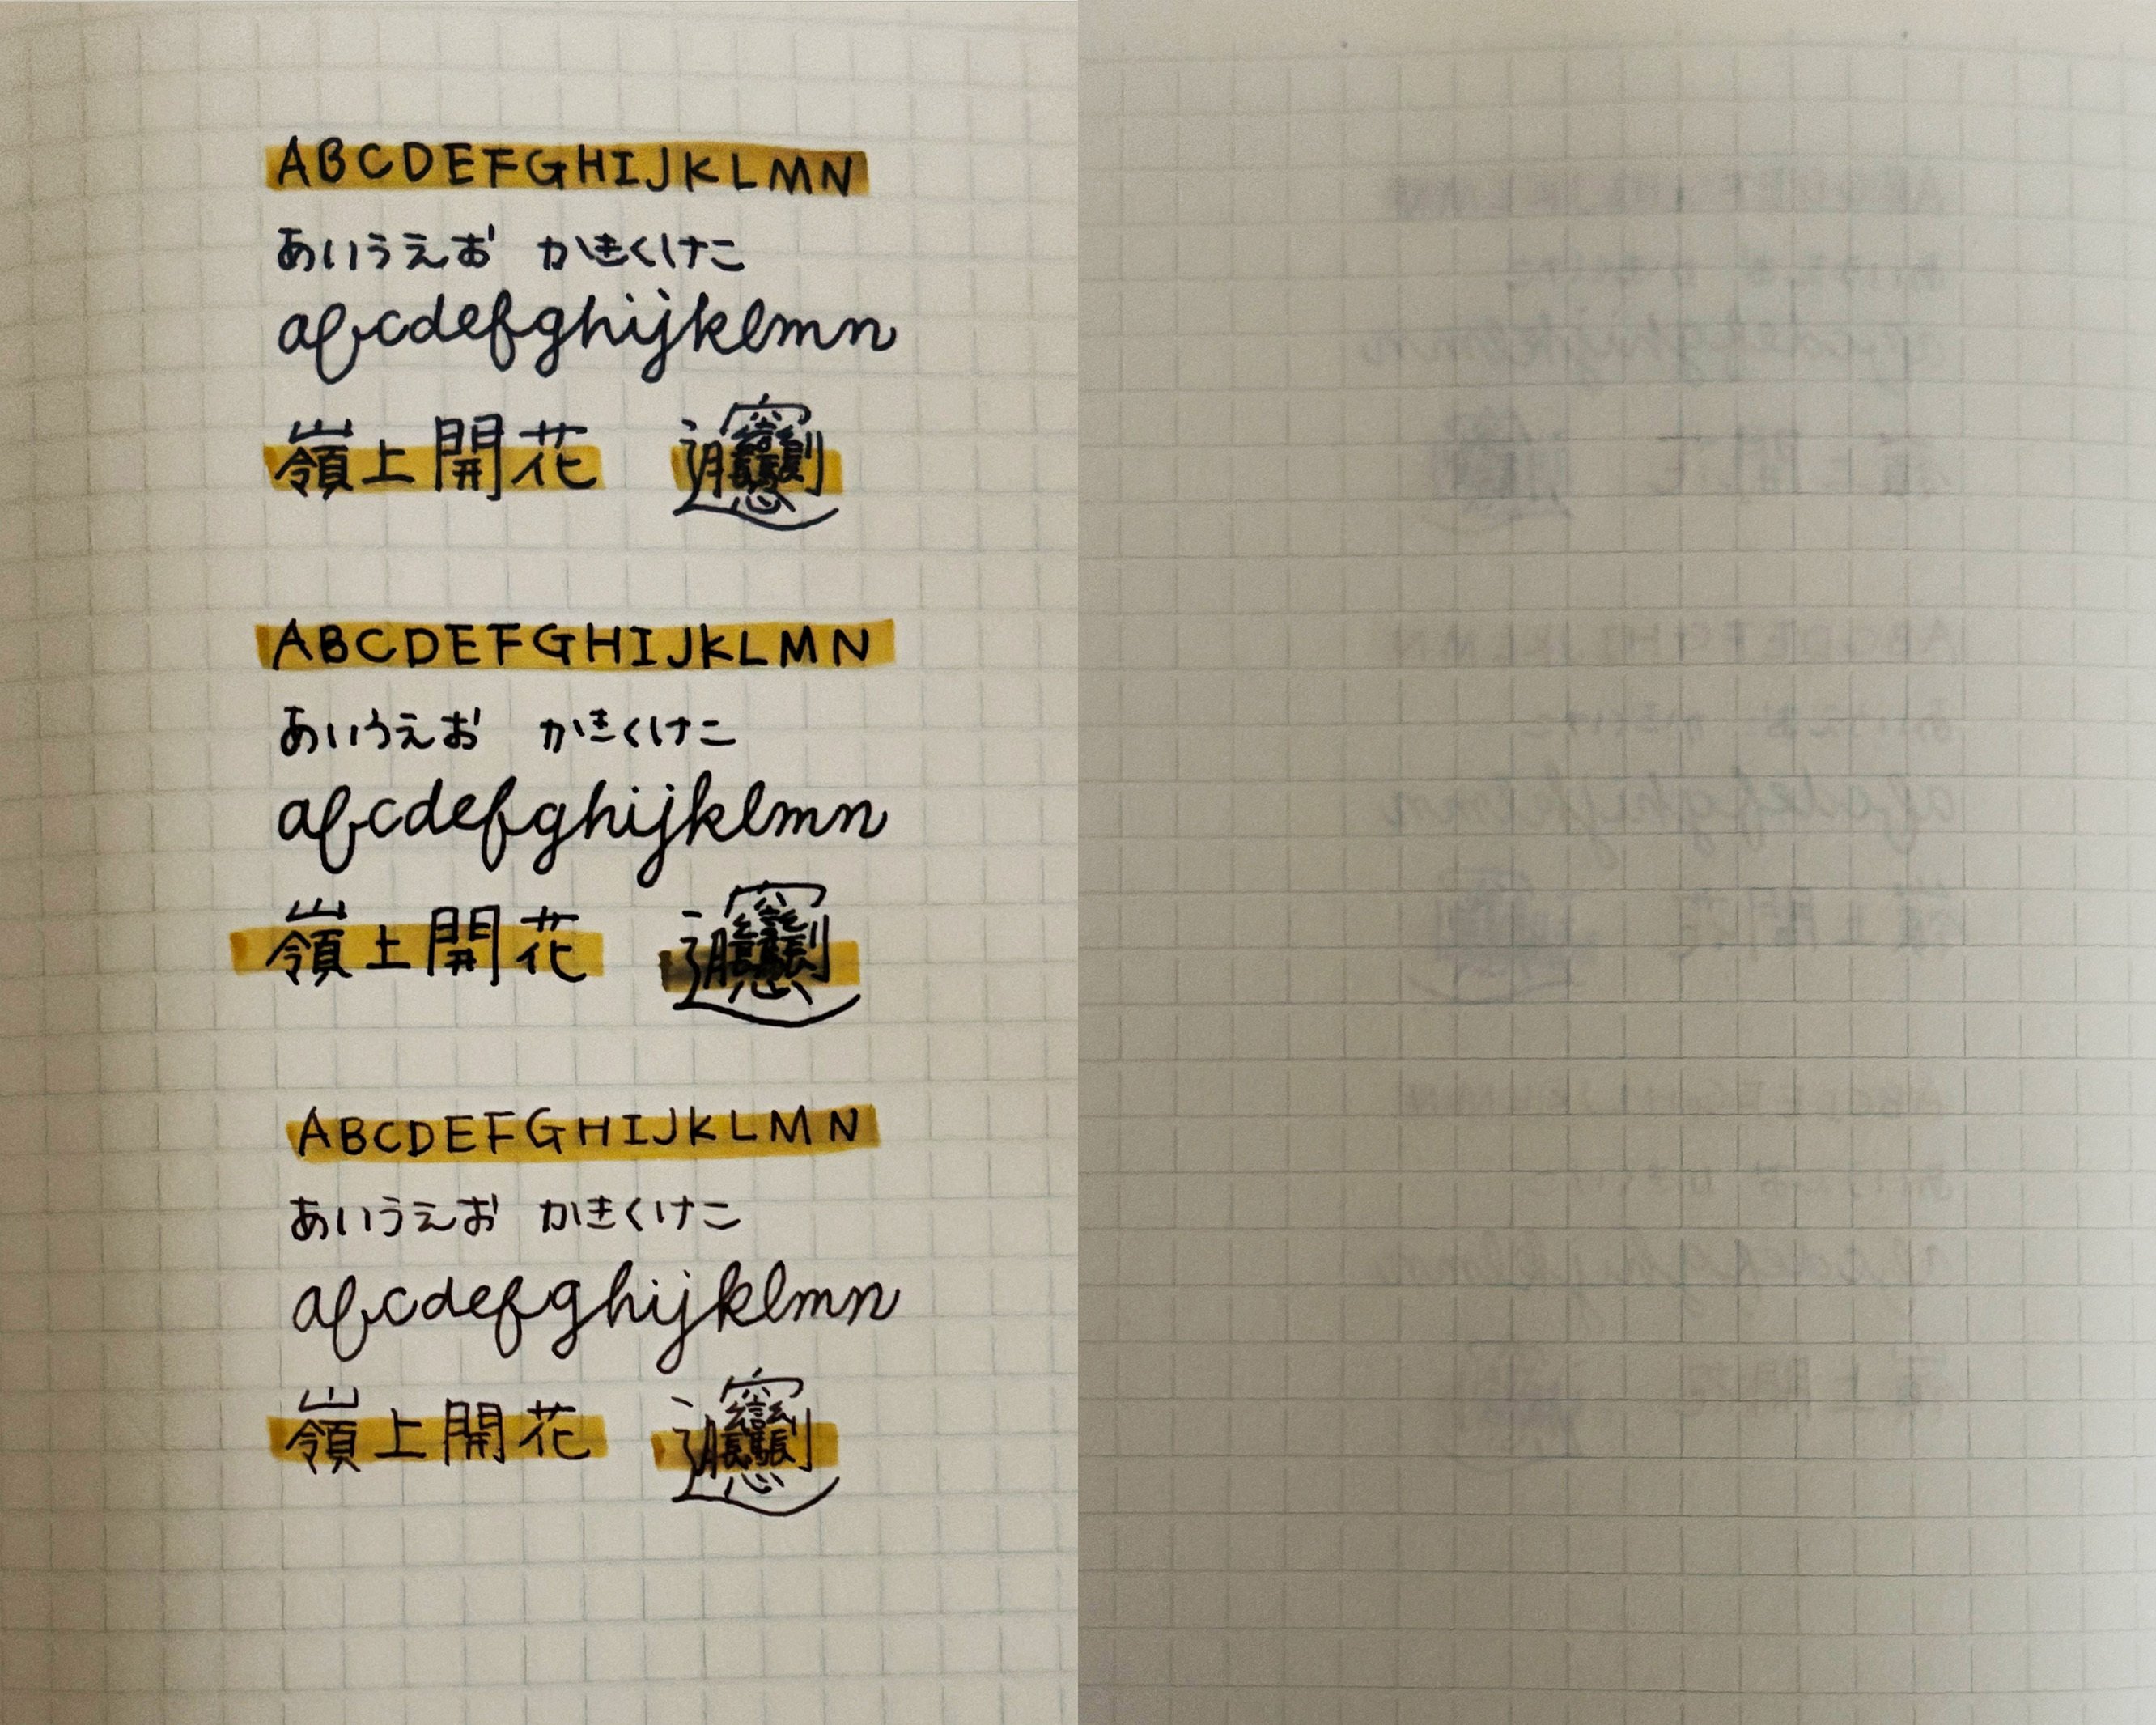 ABCDEFGHIJKLMN
あいうえお かきくけこ
abcdefghijklmn
嶺上開花 𰻞
ABCDEFGHIJKLMN
あいうえお かきくけこ
abcdefghijklmn
嶺上開花 𰻞
ABCDEFGHIJKLMN
あいうえお かきくけこ
abcdefghijklmn
嶺上開花 𰻞